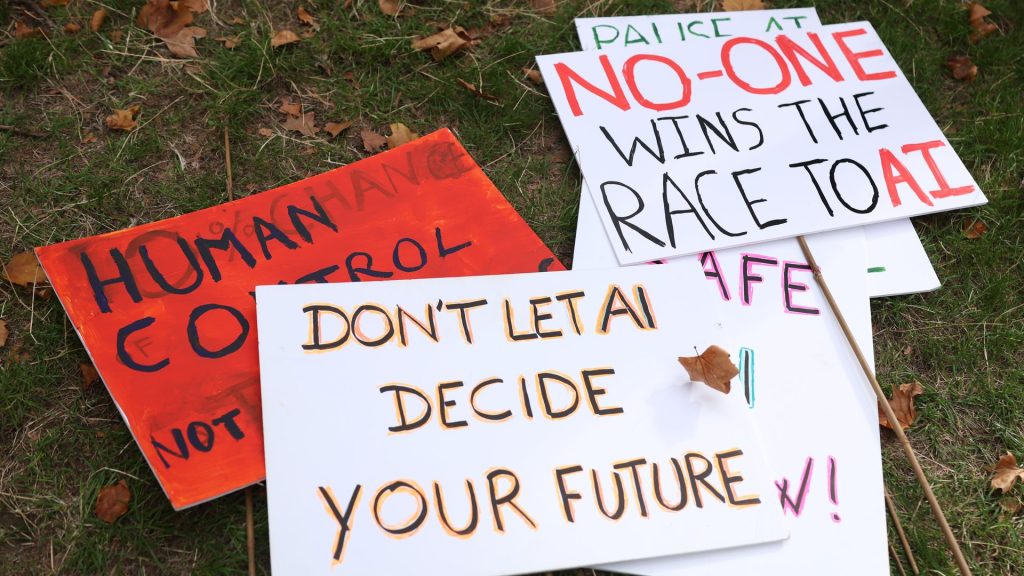 PAUSE AI
NO-ONE
WINS THE
RACE TO AI
CHANCE
HUMAN
CONTROL
NOT
AFE
DON'T LET AI
DECIDE
YOUR FUTURE
W!